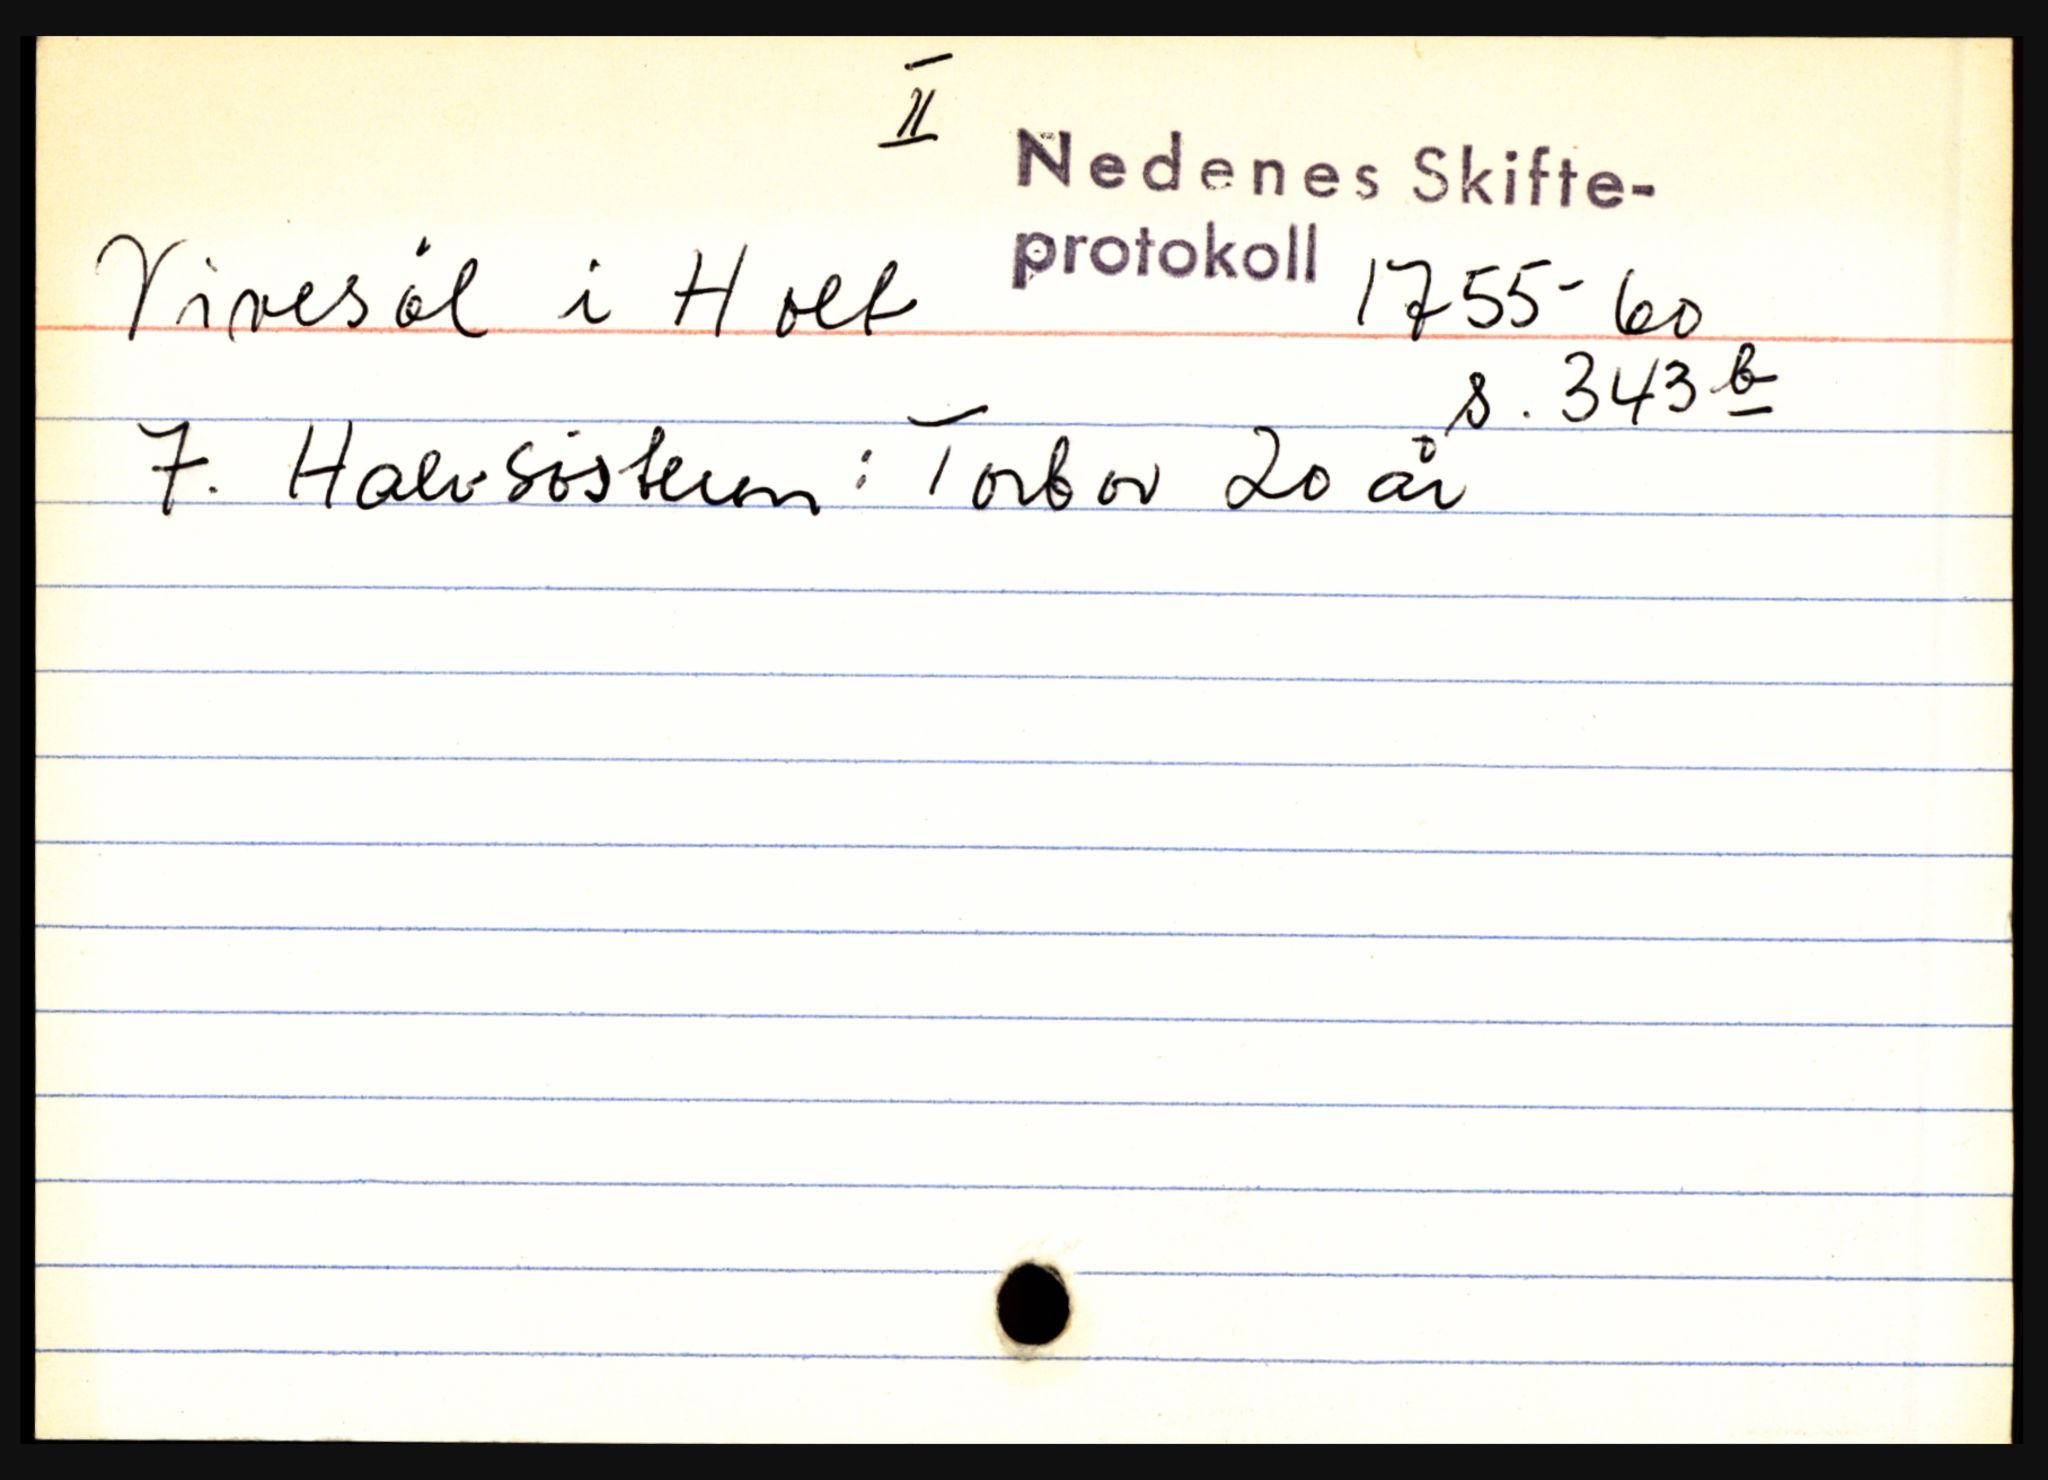 II
Nedenes Skifte-
protokoll
Vivesöl i Holt 1755-60
s. 343 b
7. Halvsösteren: Torbor 20 år